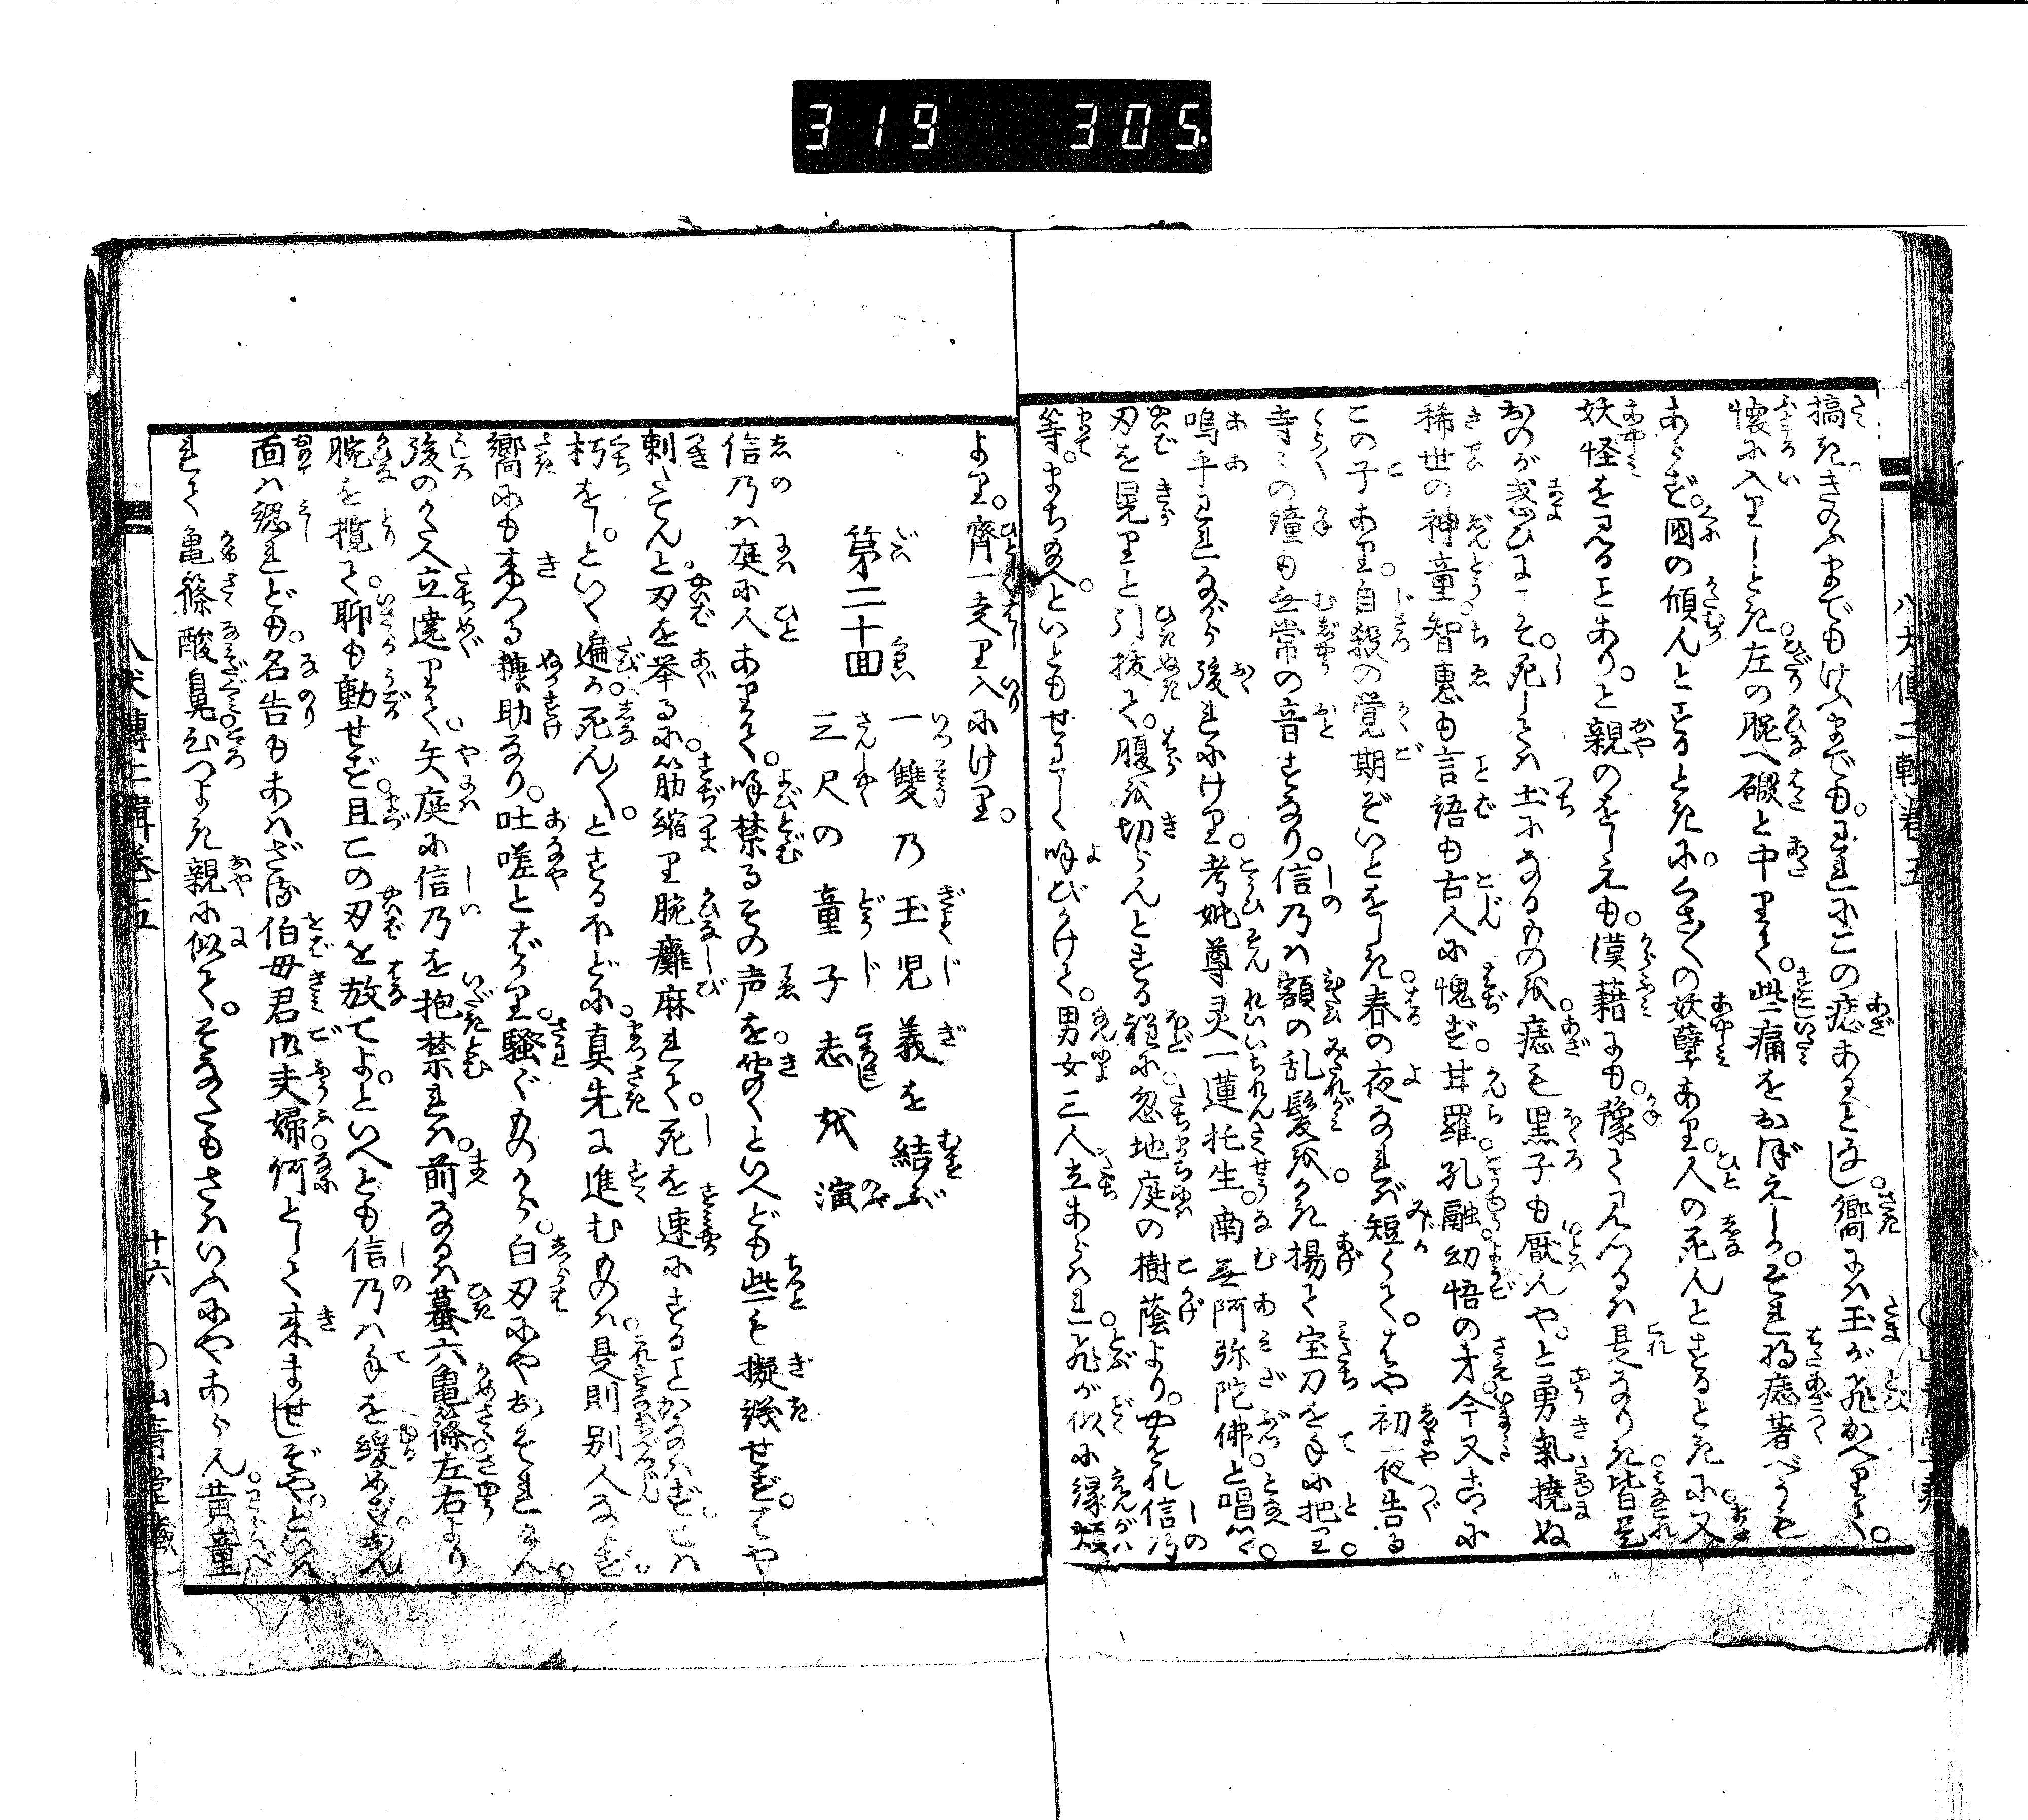 319 305
搞れば。きのふまでもけふまでも。わが身にこの痣ある事なし。嚮には玉が飛かへりて。
懐に入りしとき。左の腕へ礑と中りて。些痛をおぼえしが。それ將痣著べうも
あらず。國の傾んとするときに。くさ〴〵の妖孽あり。人の死んとするときに。又
妖怪を見ることあり。と親のをしえも。漢籍にも。豫て見つるは是なりき。皆是
おのが惑ひにこそ。死しては土になるものを。痣も黒子も厭んや。と勇氣撓ぬ
稀世の神童。智惠も言語も古人に愧ず。甘羅孔融幼悟の才。今又こゝに
この子あり。自殺の覚期ぞいとをしき。春の夜なれば短くて。はや初夜告る
寺々の鐘も無常の音すなり。信乃は額の乱髪を。かき揚て宝刀を手に把り。
嗚乎われながら後れにけり。考妣尊灵一蓮托生。南無阿弥陀佛。と唱つゝ
刃を晃りと引抜て。腹を切らんとする程に。忽地庭の樹蔭より。やをれ信乃
等。まち給へ。といともせわしく呼びかけて。男女三人立あらはれ。飛が似に縁頬
より。齊一走り入にけり。
第二十囬　一雙の玉児義を結ぶ
三尺の童子志を演
信乃は庭に人ありて。呼禁るその声を。聞くといへども些も擬議せず。はや
刺さんと刃を挙るに。筋縮り腕癱麻れて。死を速にすることかなはず。こは
朽をし。といく遍か。死ん〳〵。とする程に。真先に進むものは。是則別人ならず。
嚮にも来つる糠助なり。吐嗟とばかり。騒ぐものから。白刃にやおそれけん。
後のかた人立遶りて。矢庭に信乃を抱禁れば。前なるは蟇六亀篠。左右より
腕を攬て。聊も動せず。且この刃を放てよ。といへども信乃は手を緩めず。あん
面は認れども。名告もあはざる伯母君御夫婦。何として来ませしぞや。といへば
亀篠酸鼻。心つよき親に似て。そなたもさはいふにやあらん。黄童
八犬傳二輯巻五
十六
山青堂藏